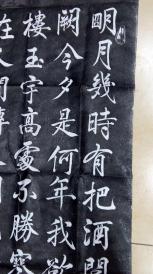 明月幾時有把酒問
闕今夕是何年我欲
樓玉宇高處不勝寒
在人間轉